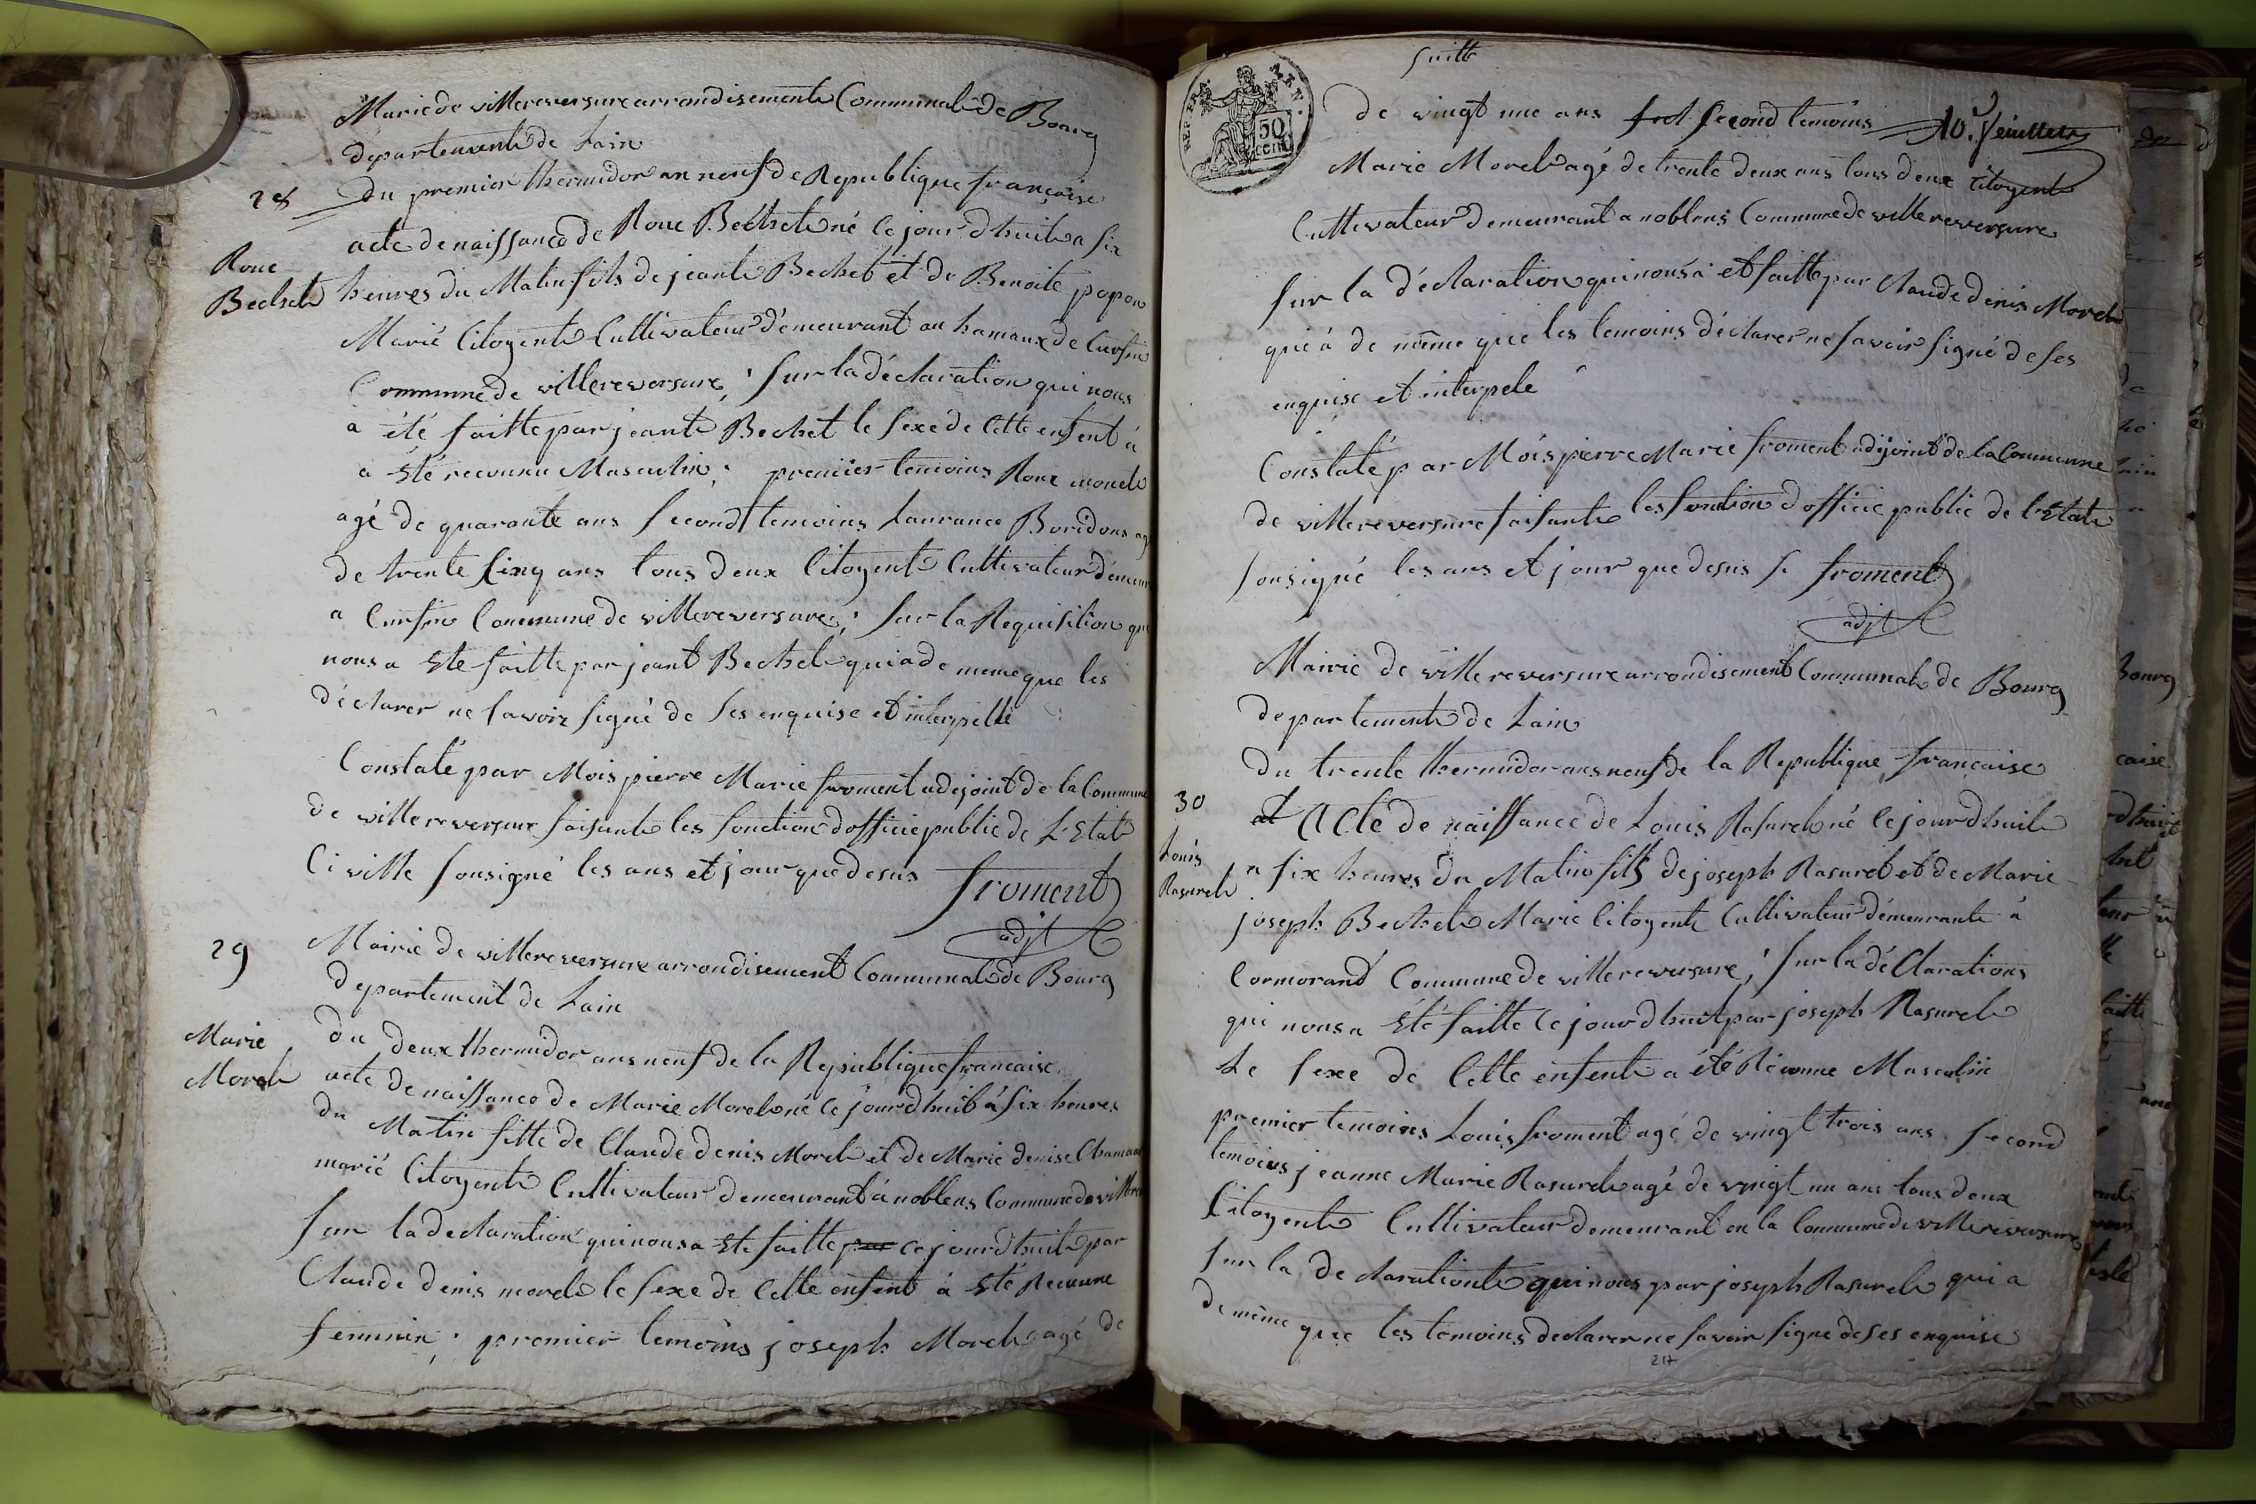 Marie de villereversure arrondisement Communal de Bourg
departement de Lain
28
du premier thermidor an neuf de Republique française
acte de naissance de Roue Bechet né ce jour dhuit a six
Roue
Bechet
heures du Matin fils de jeant Bechet et de Benoite popon
Marié Citoyent Cultivateur demeurant au hamaux de Cursin
Commune de villereversure, Sur la déclaration qui nous
a été faitte par jeant Bechet le sexe de Cette enfent à
a été reconnu Masculin; premier temoins Roux morel
agé de quarante ans second temoins Laurance Boridons agé
de trente Cinq ans tous deux Citoyent Cultivateur demeur
a Cursin Commune de villereversure; Sur la Requisition que
nous a Ete faitte par jeant Bechet qui a de meme que les
déclarer ne savoir signé de ses enquise et interpellé
Constaté par Mois pierre Marie froment adejoint de la Commune
de villereversure faisant les fonction dofficie public de L'Etat
Civille sousigné les ans et jour que desus froment
adjt
29
Mairie de villereversure arrondisement Communal de Bourg
departement de Lain
Marie
Morel
du deux thermidor ans neuf de la Republique francaise
acte de naissance de Marie Morel né ce jourdhuit à six heures
du Matin fille de Claude denis Morel et de Marie denise Chanan
marié Citoyent Cultivateur demeurant à noblens Commune de villere
Sur la declaration qui nous a Ete faitte par ce jourdhuit par
Claude denis morel le sexe de Cette enfent à Eté Reconnue
feminin; premier temoins joseph Morel agé de
suitte
REP. FRA. 50 cent.
10e. feuillets
de vingt une ans second temoins
Marie Morel agé de trente deux ans tous deux Citoyent
Cultivateur demeurant a noblens Commune de villereversure
sur la déclaration qui nous à et faitte par Claude denis Morel
qui à de même que les temoins déclarer ne savoir signé de ses
enquise et interpele
Constaté par Mois pierre Marie froment adejoint de la Commune
de villereversure faisant les fontion dofficie public de l'Etat
sousigné les ans et jour que desus froment
adjt
Mairie de villereversure arrondisement Communal de Bourg
departement de Lain
du trente thermidor ans neuf de la Republique française
30
et Acte de naissance de Louis Rasurel né ce jourdhuit
Louis
Rasurel
a six heures du Matin fils de joseph Rasurel et de Marie
joseph Bechet Marie Citoyent Cultivateur démeurant à
Cormorand Commune de villereversure; Sur la dé Clarations
qui nous a Eté faitte ce jourdhuit par joseph Rasurel
Le sexe de Cette enfent a été Réconnue Masculin
premier temoins Louis froment agé de vingt trois ans second
temoins jeanne Marie Rasurel agé de vingt un ans tous deux
Citoyent Cultivateur demeurant en la Commune de villereversure
Sur la declarationt qui nous par joseph Rasurel qui a
de même que les temoins declarer ne savoir signe de ses enquise
217